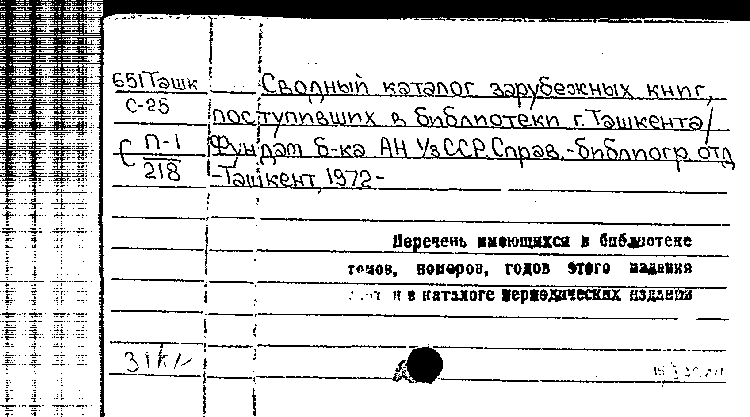 651Ташк Сводный каталог зарубежных книг,
С-25 поступивших в библиотеки г.Ташкента/
С П-1/218 Фундам б-ка АН УзССР. Справ.-библиогр. отд
-Ташкент, 1972-
Перечень имеющихся в библиотеке
томов, номеров, годов этого издания
и в каталоге периодических изданий